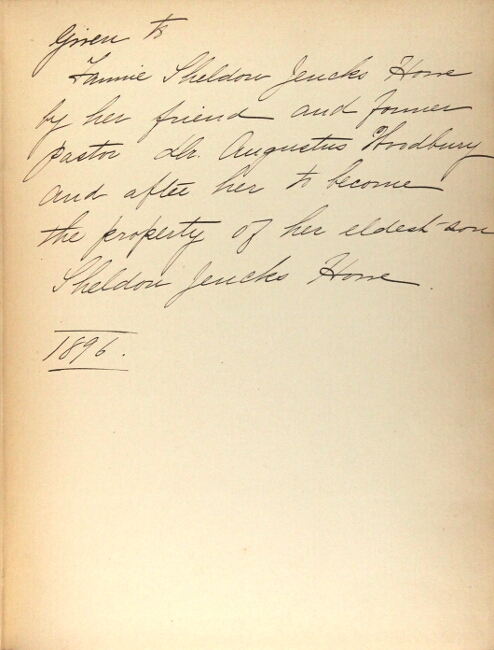 Given to
Fannie Sheldon Jencks Howe
by her friend and former
pastor Dr. Augustus Woodbury
and after her to become
the property of her eldest son
Sheldon Jencks Howe.
1896.